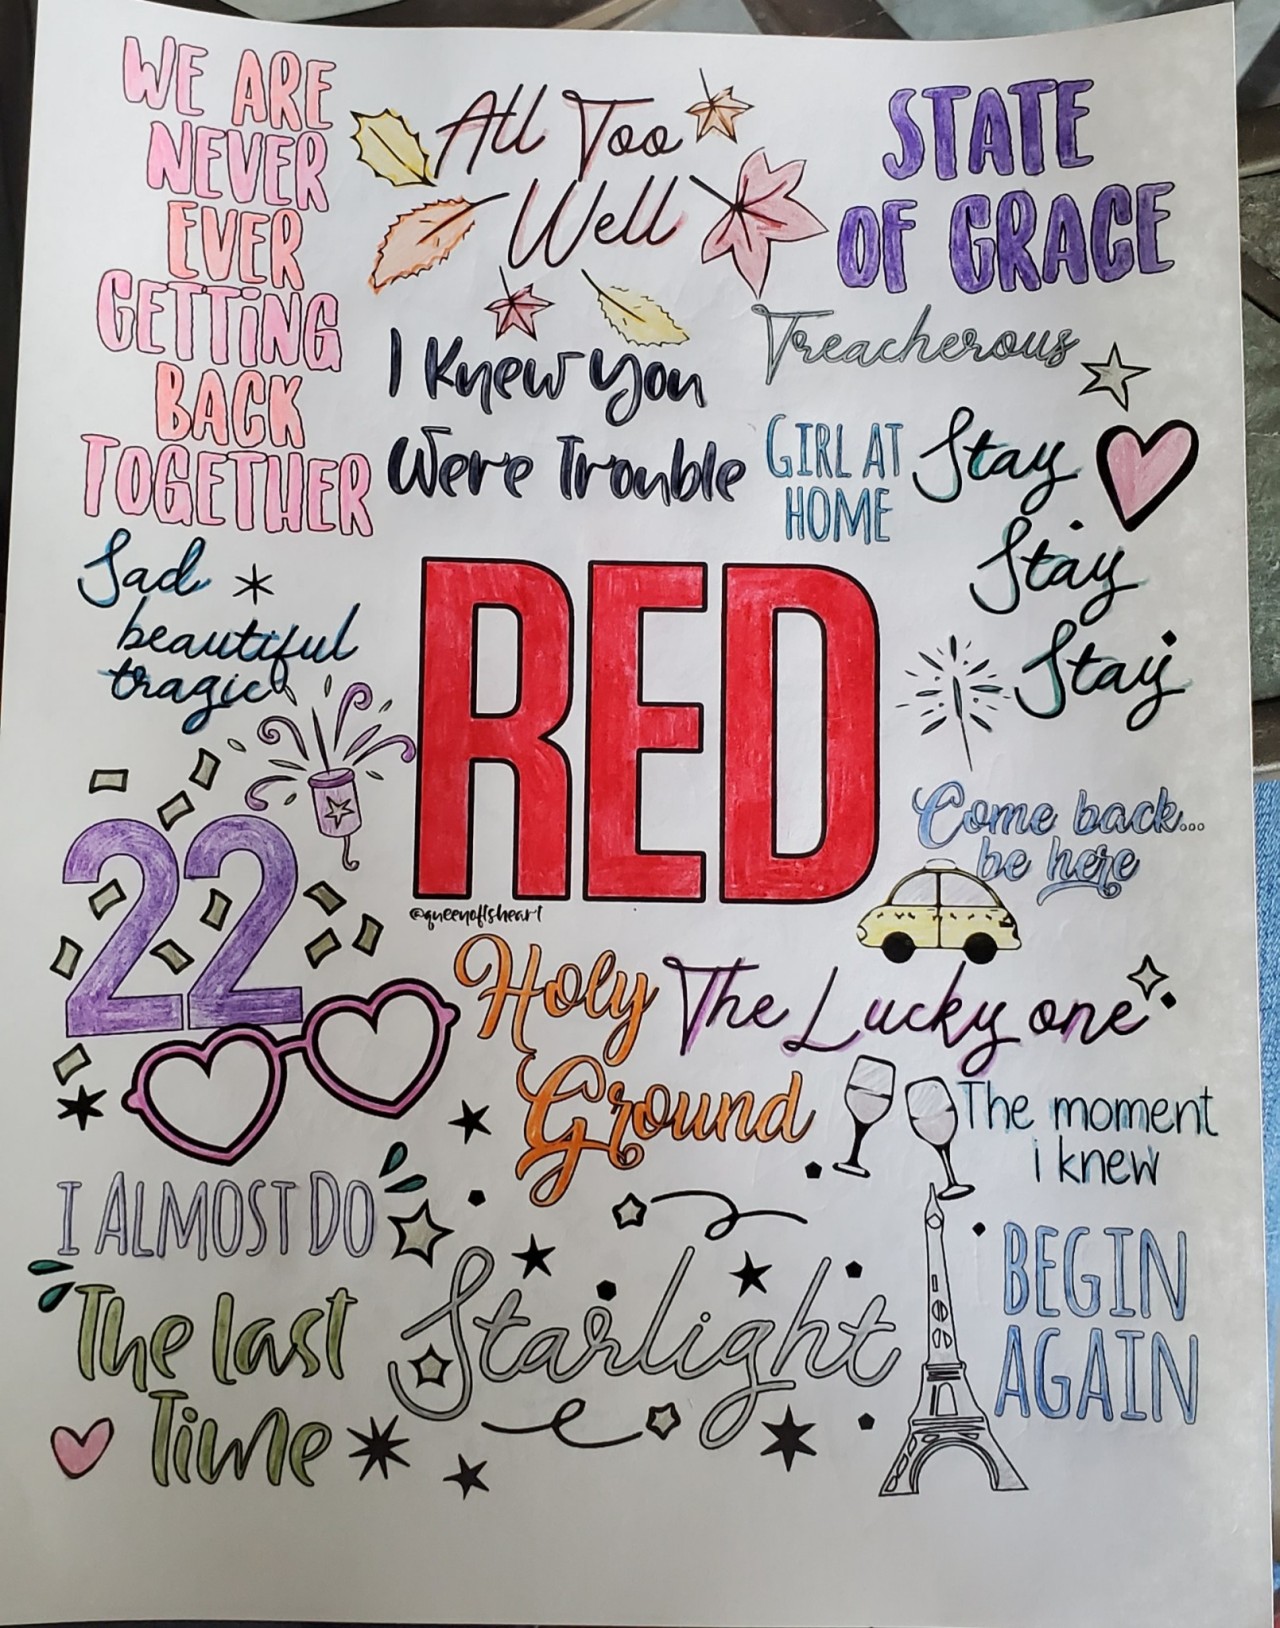 WE ARE
NEVER
EVER
GETTiNG
BACK
TOGETHER
All Too
Well
STATE
OF GRACE
I Knew You
Were Trouble
Treacherous
GIRL AT
HOME
Stay
Stay
Stay
Sad
beautiful
tragic
RED
@queenoflsheart
22
Come back...
be here
Holy
Ground
The Lucky one
The moment
i knew
I ALMOST DO
The last
Time
Starlight
BEGIN
AGAIN